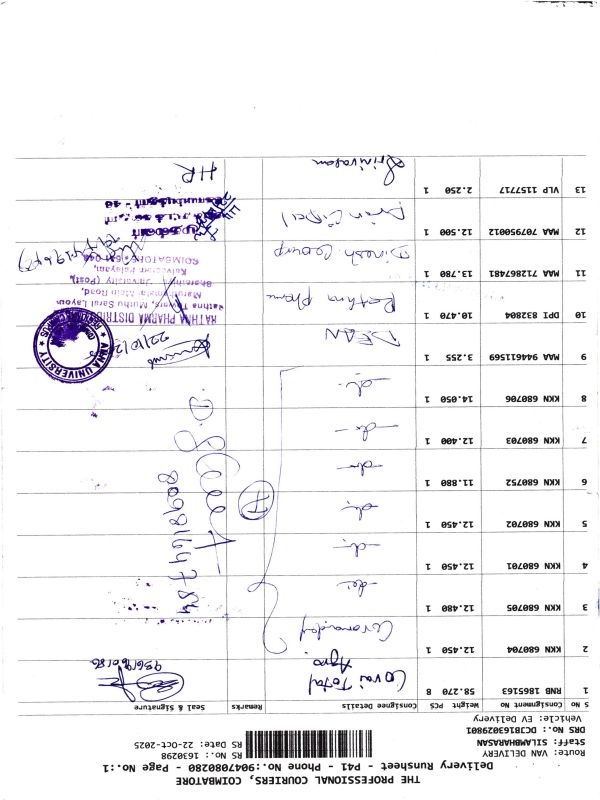 THE PROFESSIONAL COURIERS, COIMBATORE
Delivery Runsheet - P41 - Phone No.:9047080280 - Page No.:1
Route: VAN DELIVERY
Staff: SILAMBHARASAN
DRS No.: DCJB163029801
Vehicle: EV Delivery
RS No.: 1630298
RS Date: 22-Oct-2025
S No Consignment No Weight PCS Consignee Details Remarks Seal & Signature
1 RNB 1865163 58.270 8 Covai Total Agro. 9361960186
2 KKN 680704 12.450 1
3 KKN 680705 12.480 1 -do-
4 KKN 680701 12.450 1 -do-
5 KKN 680702 12.450 1 -do-
6 KKN 680752 11.880 1 -do-
7 KKN 680703 12.400 1 -do-
8 KKN 680706 14.050 1 -do-
7
8098164784
9 MAA 944611569 3.255 1 DEAN
22/10/25
ANNA UNIVERSITY
REGIONAL CAMPUS
10 DPI 832804 10.470 1 Rathna Pharma
RATHNA PHARMA DISTRI
Rathna Towers, Muthu Sarai Layou
Maruthamalai Main Road,
Bharathiar University (Post),
Kalveerampalayam,
COIMBATORE - 641 046
11 MAA 712867481 13.780 1 Dinesh Group
12 MAA 707950012 12.500 1 Principal
13 VLP 1157717 2.250 1 Srinivasan
HR